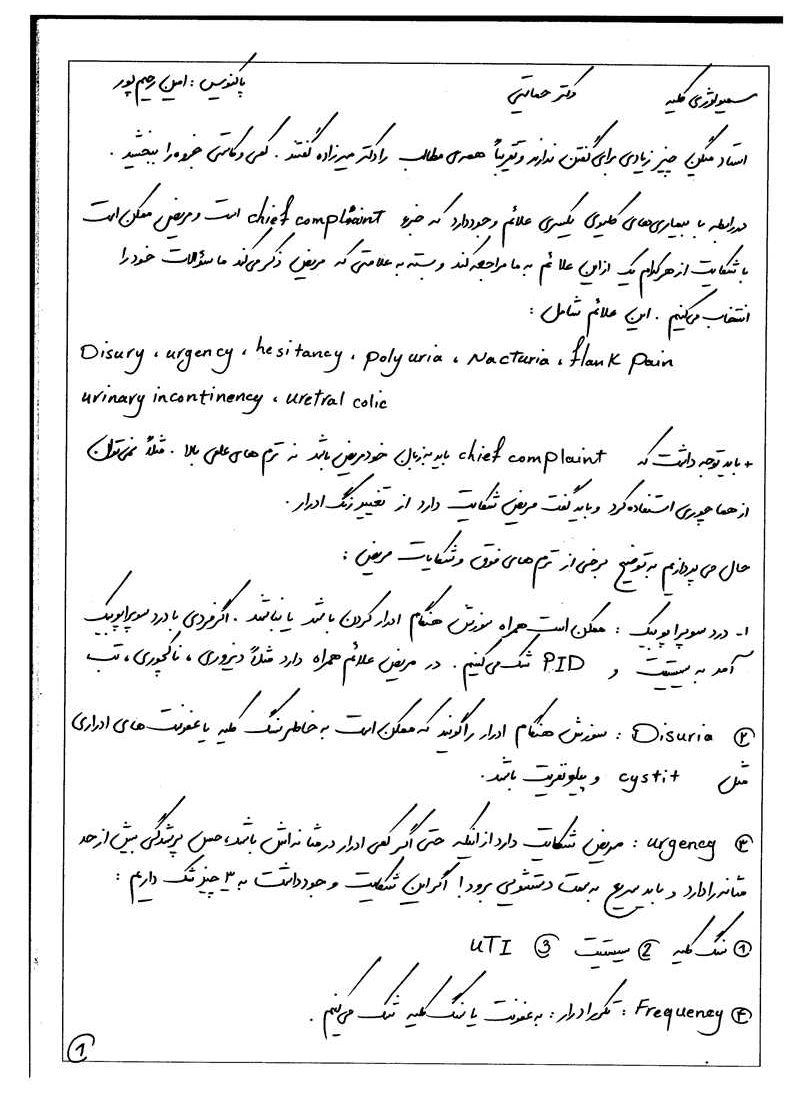 سمیولوژی کلیه دکتر حمایتی پاکنویس : امین رحیم پور
استاد میگن چیز زیادی برای گفتن ندارند و تقریباً همه‌ی مطالب را دکتر میرزاده گفتند . کمی و کاستی جزوه را ببخشید .
در رابطه با بیماری‌های کلیوی یکسری علائم وجود دارد که جزء chief complaint است و مریض ممکن است
با شکایت از هر کدام یک از این علائم به ما مراجعه کند و بسته به علامتی که مریض ذکر می‌کند ما سؤالات خود را
انتخاب می‌کنیم . این علائم شامل :
Disury ، urgency ، hesitancy ، polyuria ، Nacturia ، flank Pain
urinary incontinency ، uretral colic
+ باید توجه داشت که chief complaint باید به زبان خود مریض باشد نه ترم های علمی بالا . مثلاً نمی‌توان
از هماچوری استفاده کرد و باید گفت مریض شکایت دارد از تغییر رنگ ادرار .
حال می پردازیم به توضیح برخی از ترم های فوق و شکایات مریض :
۱- درد سوپراپوبیک : ممکن است همراه سوزش هنگام ادرار کردن باشد یا نباشد . اگر فردی با درد سوپراپوبیک
آمد به سیستیت و PID شک می‌کنیم . در مریض علائم همراه دارد مثلاً دیزوری ، ناکچوری ، تب
② Disuria : سوزش هنگام ادرار را گویند که ممکن است به خاطر سنگ کلیه یا عفونت های ادراری
مثل cystit و پیلونفریت باشد .
③ urgency : مریض شکایت دارد از اینکه حتی اگر کمی ادرار در مثانه‌اش باشد، حس پرشدگی بیش از حد
مثانه را دارد و باید سریع به سمت دستشویی برود ! اگر این شکایت وجود داشت به ۳ چیز شک داریم :
① سنگ کلیه ② سیستیت ③ UTI
④ Frequency : تکرر ادرار : به عفونت یا سنگ کلیه شک می‌کنیم .
①